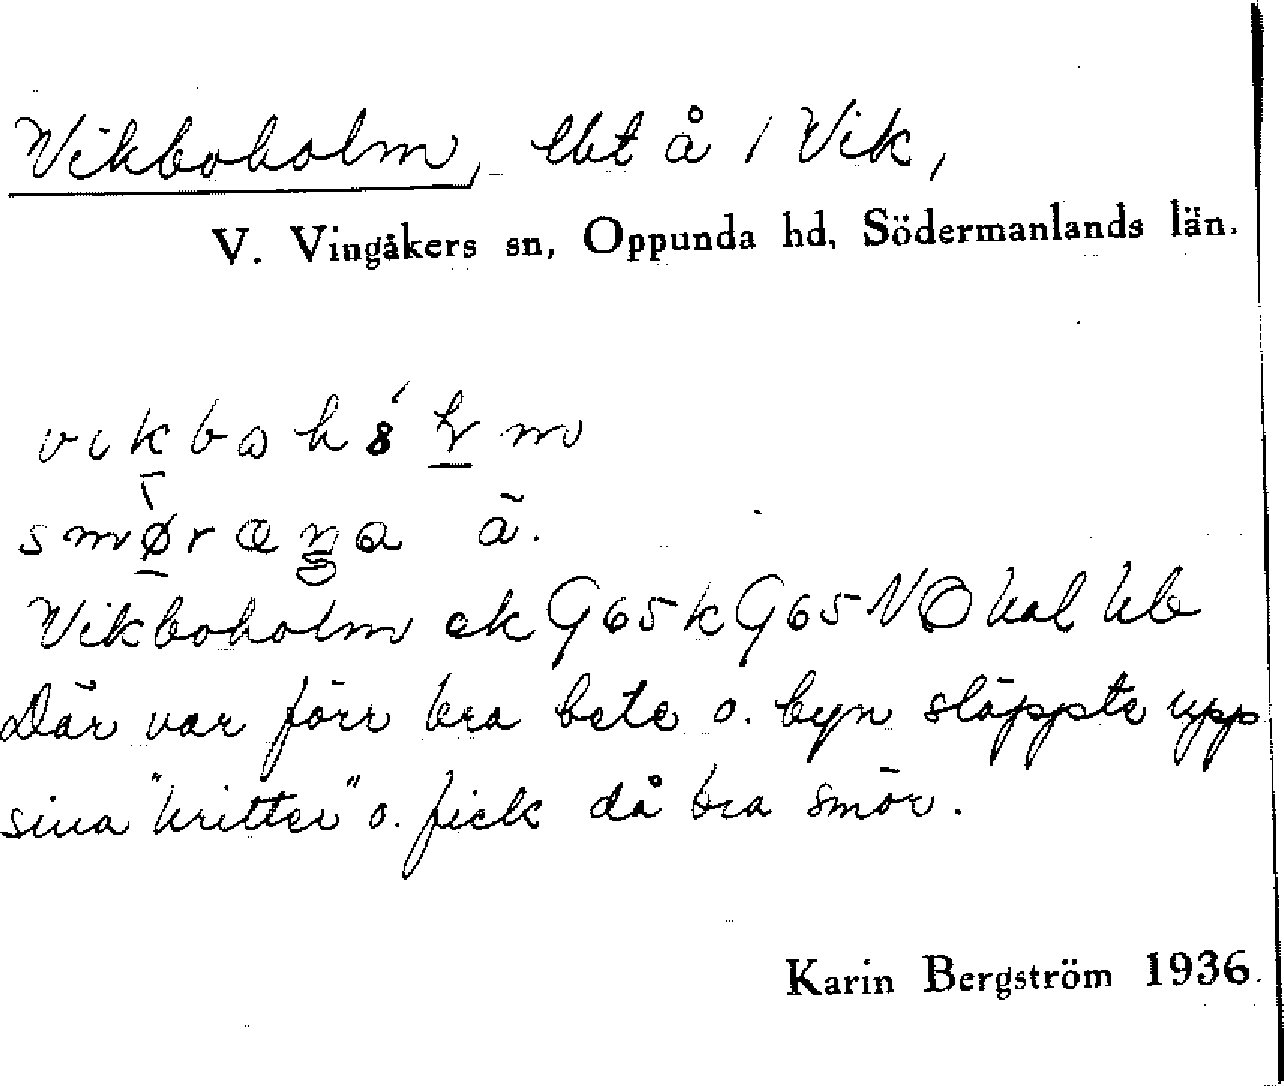 Vikboholm, lbt å / Vik,
V. Vingåkers sn, Oppunda hd, Södermanlands län.
smøræŋa å.
Vikboholm ek G65 k G65 NO
Där var förr bra bete o. byn släppte upp
sina "kritter" o. fick då bra smör.
Karin Bergström 1936.